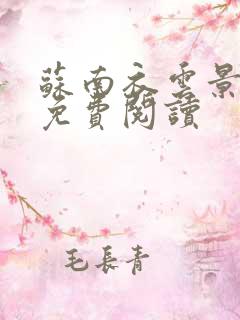 蘇南衣雲景
免費閱讀
毛長青